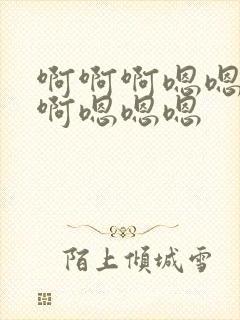 啊啊啊嗯嗯
啊嗯嗯嗯
陌上倾城雪